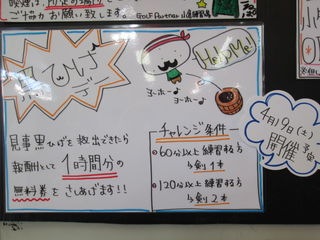 ご協力お願い致します。
GOLF Partner 小倉練習場
ひげ
Help Me!
ヨーホー♪
ヨーホー♪
見事黒ひげを救出できたら
報酬として1時間分の
無料券をさしあげます!!
チャレンジ条件
・60分以上練習する方
→剣1本
・120分以上練習する方
→剣2本
4月19日(土)
開催予告